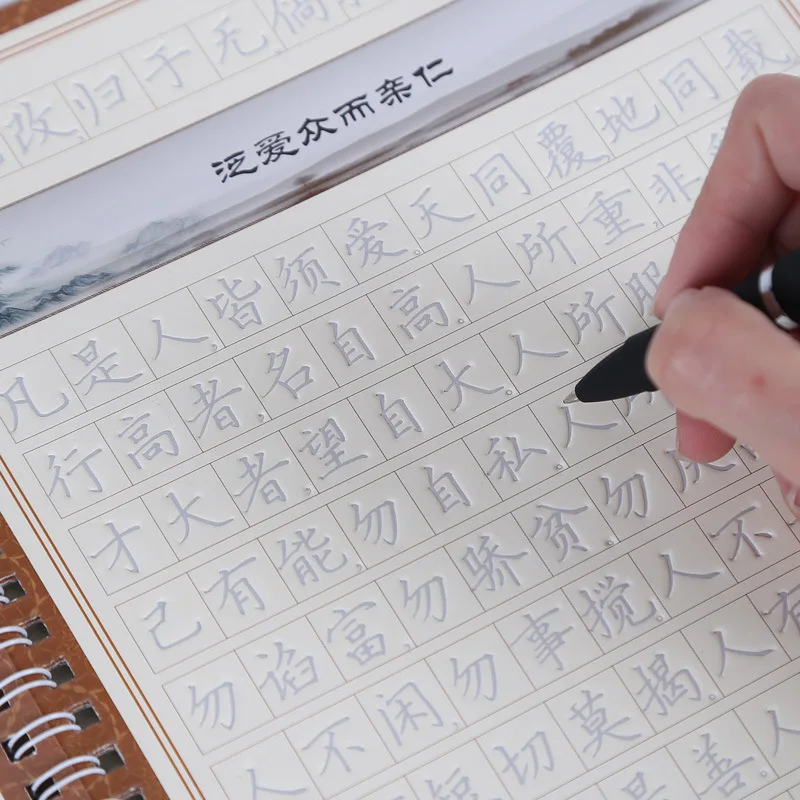 改归于无倘
泛爱众而亲仁
凡是人,皆须爱。天同覆,地同载
行高者,名自高。人所重,非
才大者,望自大。人所服
己有能,勿自私。人
勿谄富,勿骄贫。勿
人不闲,勿事搅。人不
短,切莫揭。人有
善。人